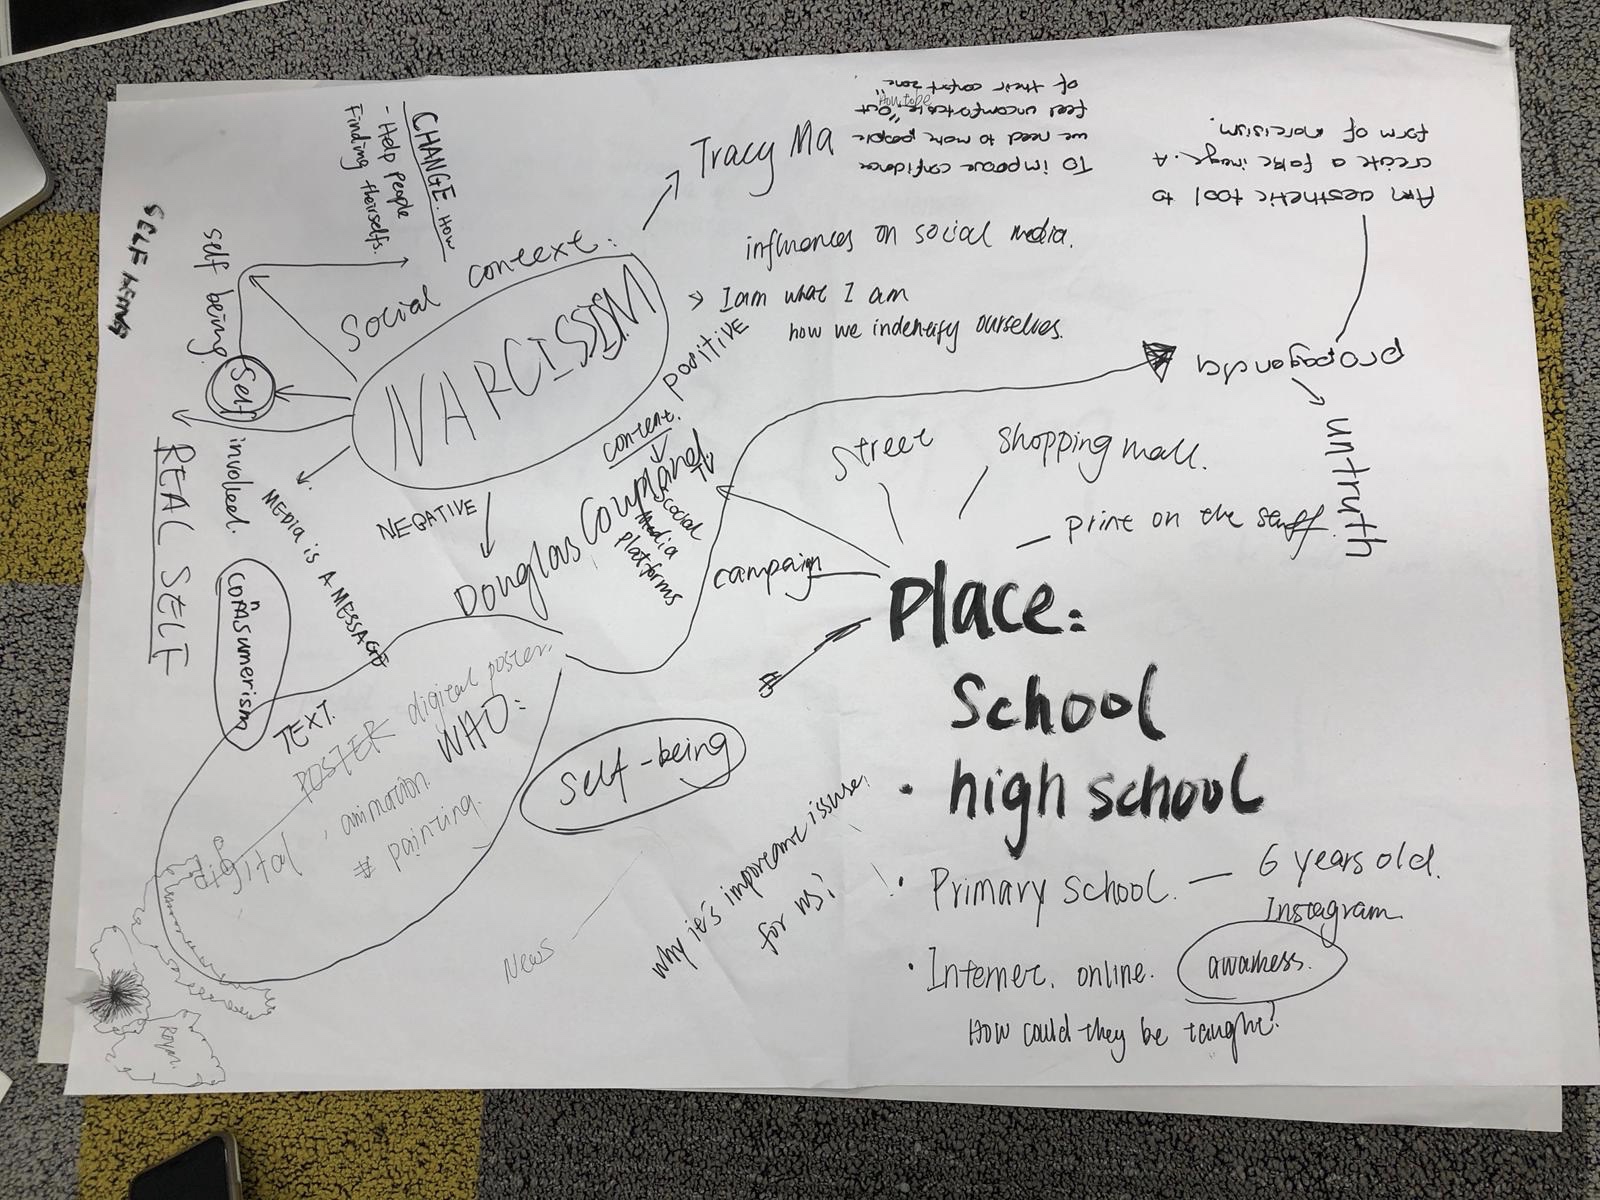 CHANGE. How
- Help people
Finding theirselfs.
Tracy Ma
To improve confidence
we need to more people
feel uncomfortable "out
How to be
of their confort zone"
An aesthetic tool to
create a fake image. A
form of narcisism.
SELF
self being
Self
involked.
REAL SELF
Social context:
NARCISSISM
influences on social media.
> I am what I am
how we indentify ourselves.
positive
propaganda
untruth
content.
TV
social
Media
platforms
NEGATIVE
Douglas Coupland
MEDIA IS A MESSAGE
consumerism
street
shopping mall.
print on the stuff.
campaign
Place:
School
· high school
· Primary school. — 6 years old.
Instagram
· Internet. online. awarness.
How could they be taught?
TEXT.
POSTER digital poster.
WHO:
digital, animation.
# painting.
Self-being
Why it's important issuse,
for us?
News